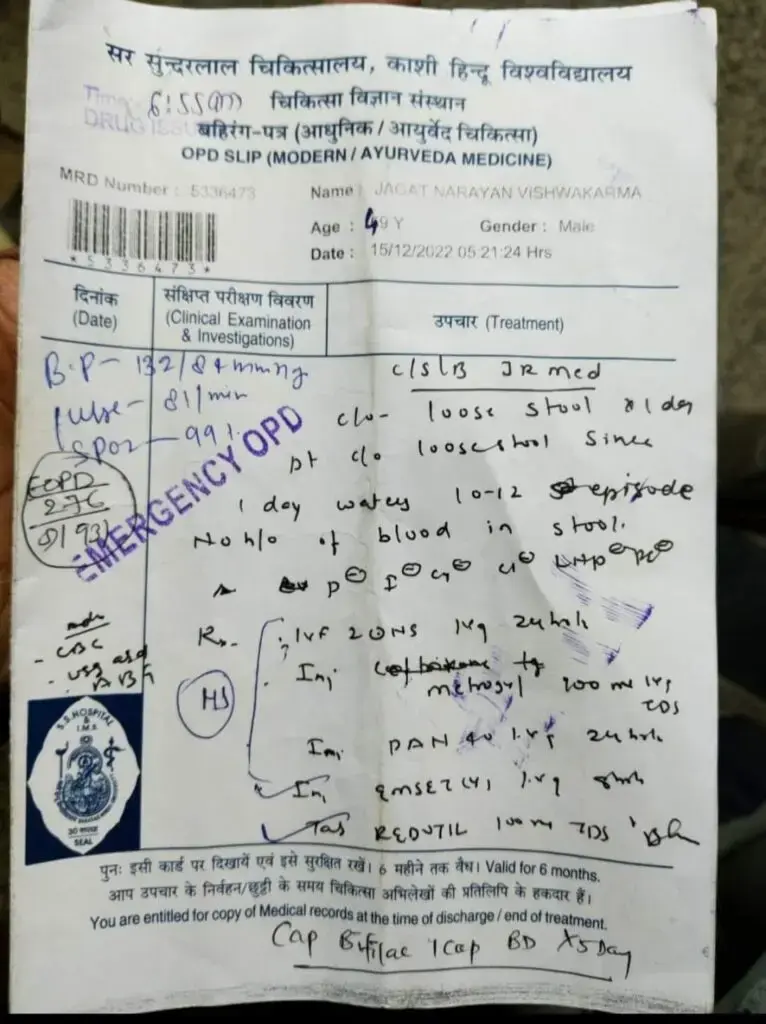 सर सुन्दरलाल चिकित्सालय, काशी हिन्दू विश्वविद्यालय
चिकित्सा विज्ञान संस्थान
बहिरंग-पत्र (आधुनिक / आयुर्वेद चिकित्सा)
OPD SLIP (MODERN / AYURVEDA MEDICINE)
MRD Number : 5336473
Name : JAGAT NARAYAN VISHWAKARMA
Age : 49 Y Gender : Male
*5336473*
Date : 15/12/2022 05:21:24 Hrs
दिनांक
(Date)
संक्षिप्त परीक्षण विवरण
(Clinical Examination
& Investigations)
उपचार (Treatment)
B.P- 132/84 mmHg
Pulse- 81/min
SPO2-99%
EMERGENCY OPD
EOPD
276
C/S/B JR Med
c/o- loose stool x1 day
pt c/o loose stool since
1 day watery 10-12 episode
No h/o of blood in stool.
- CBC
Rx. IVF 2 DNS
Inj metrogyl 100 ml
TDS
Inj PAN 40
Inj EMSET
Tab REDOTIL 100 mg TDS
S.S. HOSPITAL
&
I.M.S.
SEAL
पुनः इसी कार्ड पर दिखायें एवं इसे सुरक्षित रखें। 6 महीने तक वैध। Valid for 6 months.
आप उपचार के निर्वहन/छुट्टी के समय चिकित्सा अभिलेखों की प्रतिलिपि के हकदार हैं।
You are entitled for copy of Medical records at the time of discharge / end of treatment.
Cap Bifilac 1 Cap BD X5 Day